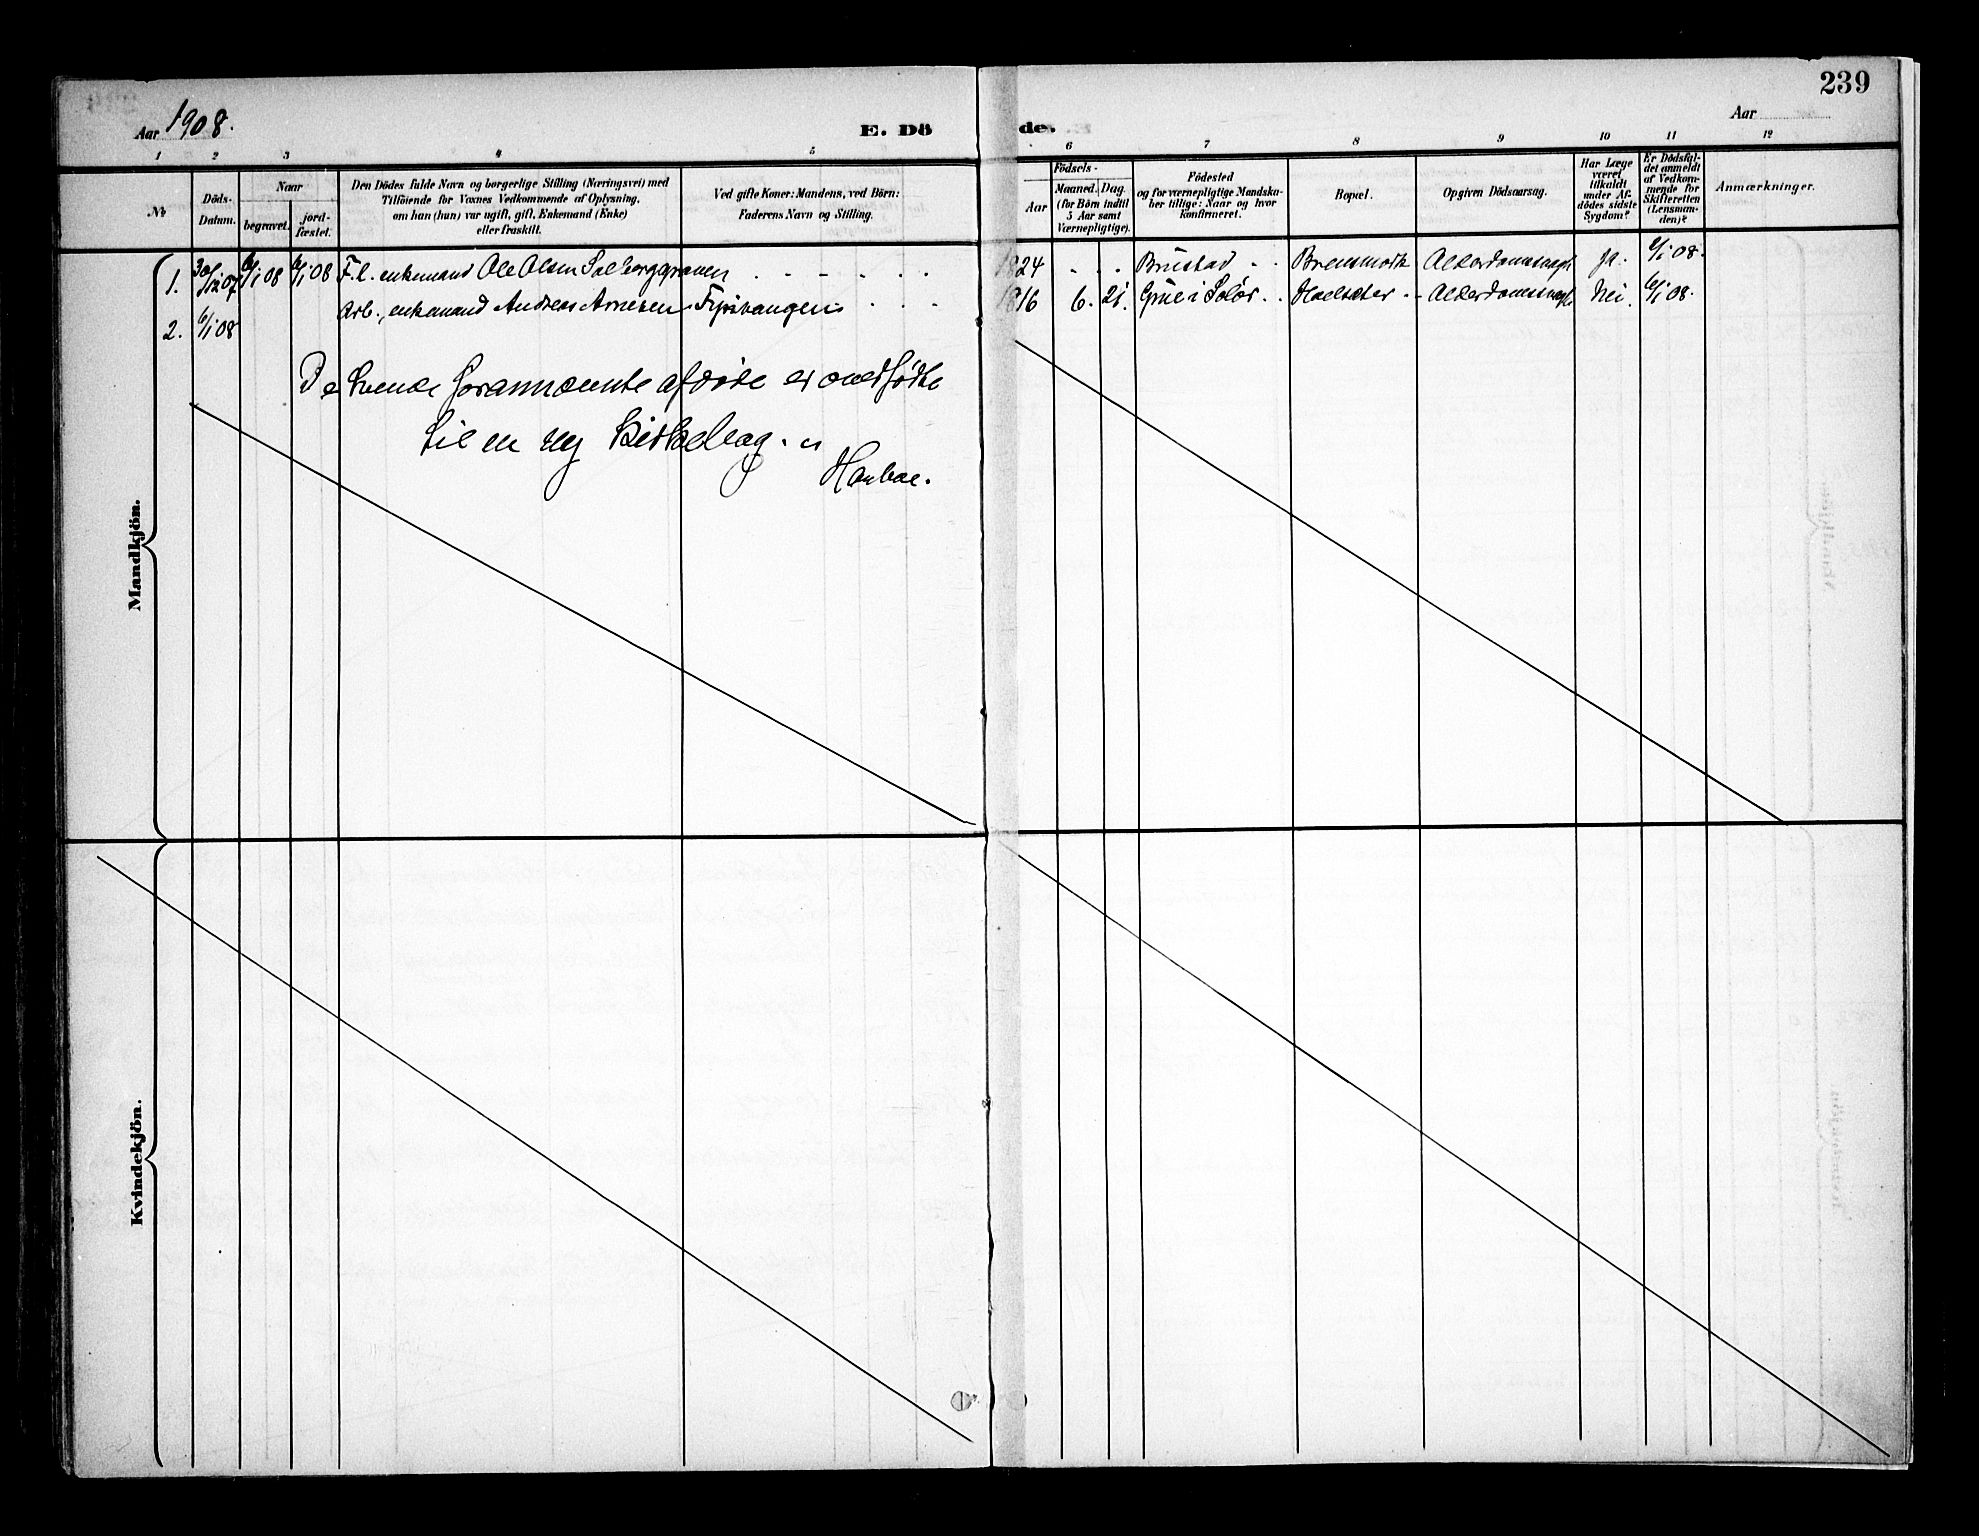 239
Aar 1908.
E. Dö
de.
Aar
1 2 3 4 5 6 7 8 9 10 11 12
№
Döds-
Datum.
Naar
begravet.
jord-
fæstet.
Den Dödes fulde Navn og borgerlige Stilling (Næringsvei) med
Tilföiende for Voxnes Vedkommende af Oplysning,
om han (hun) var ugift, gift, Enkemand (Enke)
eller fraskilt.
Ved gifte Koner: Mandens, ved Börn:
Faderens Navn og Stilling.
Födsels-
Aar
Maaned. Dag.
(for Börn indtil
5 Aar samt
Værnepligtige).
Födested
og for værnepligtige Mandska-
ber tillige: Naar og hvor
konfirmeret.
Bopæl.
Opgiven Dödsaarsag.
Har Læge
været
tilkaldt
under Af-
dödes sidste
Sygdom?
Er Dödsfal-
det anmeldt
af Vedkom-
mende for
Skifteretten
(Lensman-
den)?
Anmærkninger.
1. 30/12 07 6/1 08 6/1 08 F.l. enkemand Ole Olsen 1824 Brustad Ja. 6/1 08.
2. 6/1 08 Arb., enkemand Andreas Arnesen 1816 6. 21. Grue i Solør Nei. 6/1 08.
De tvende forannævnte afdøde er overførte
til en ny Kirkebog.
Mandkjön.
Kvindekjön.